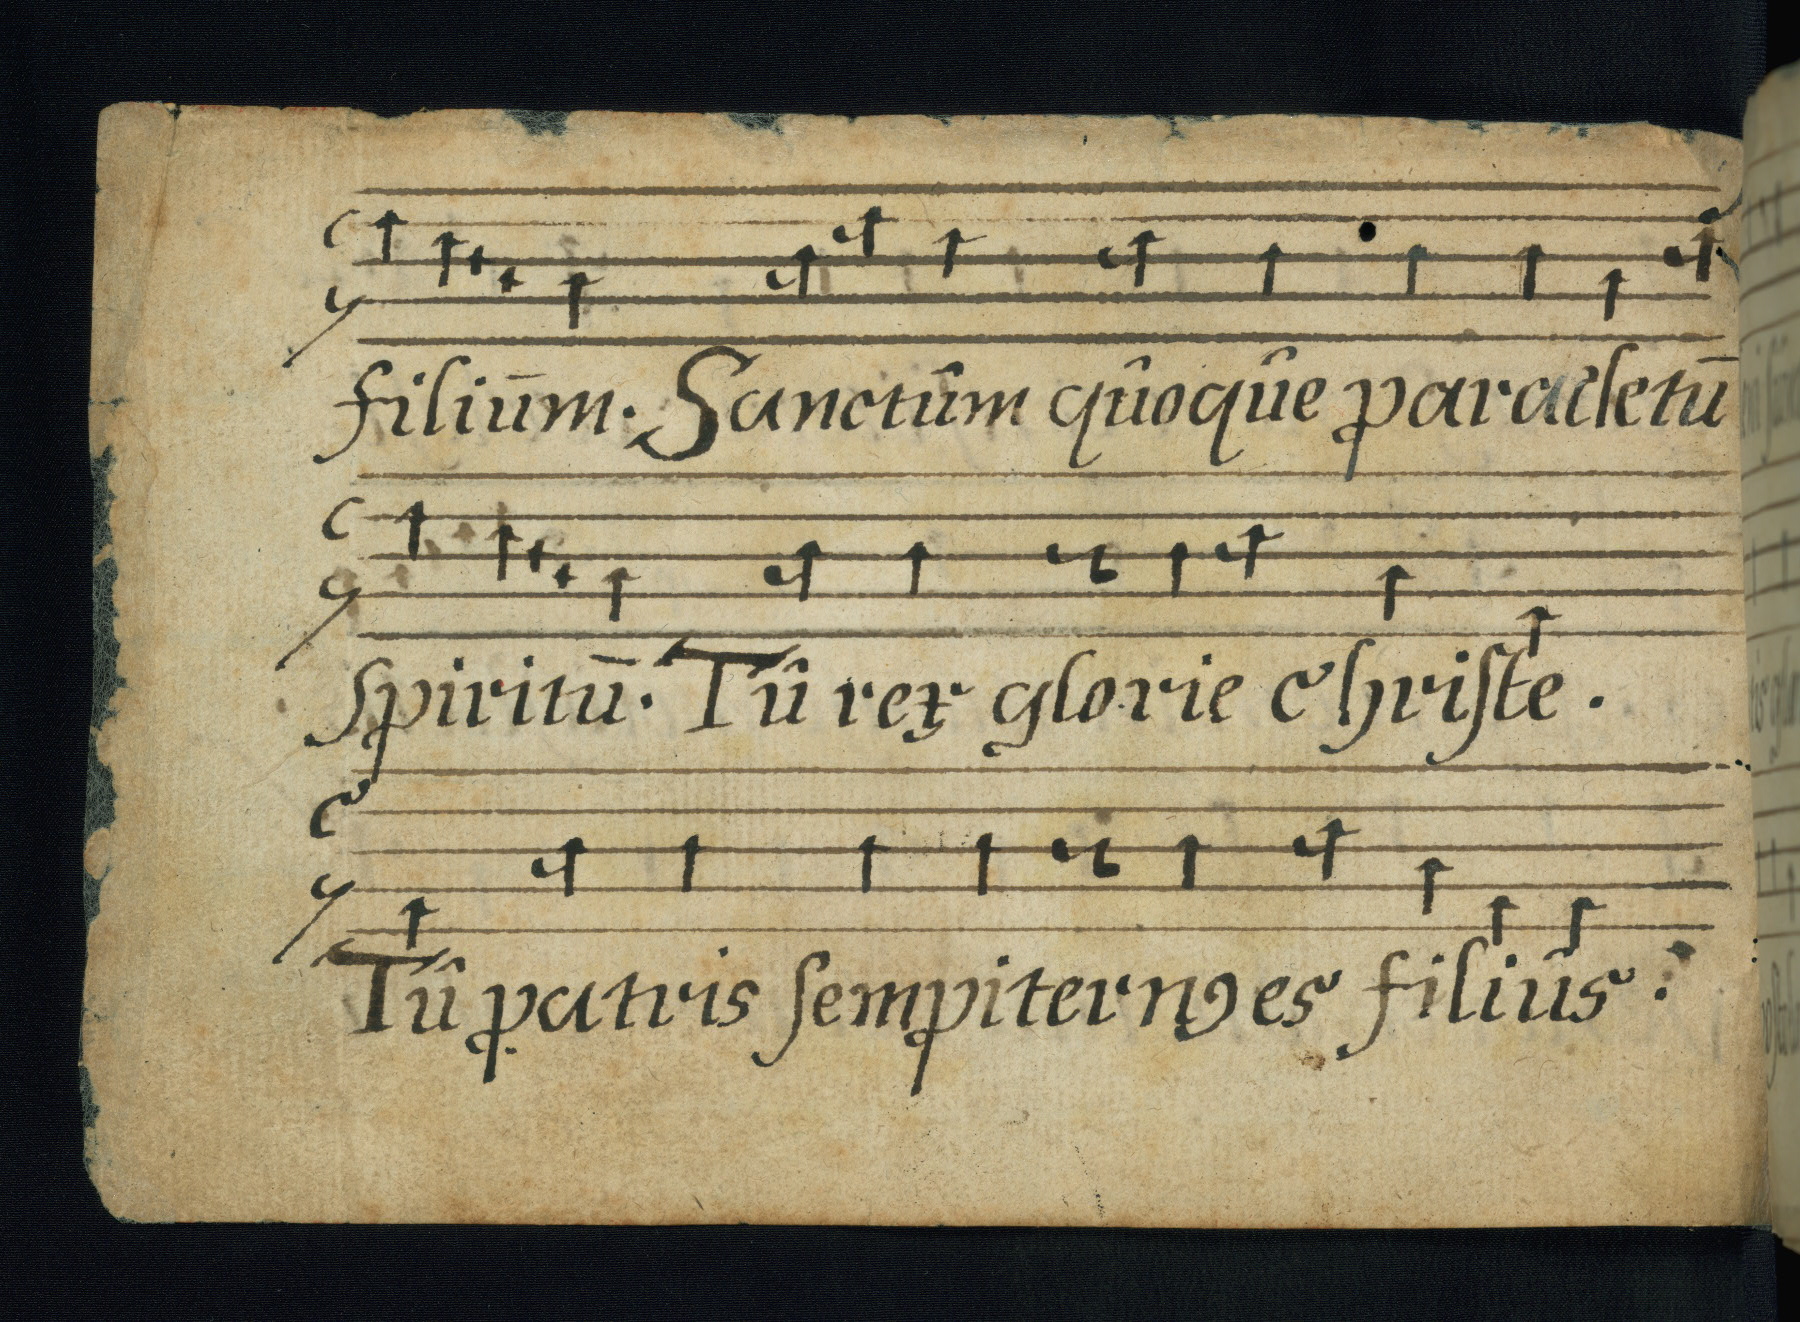 filiūm. Sanctûm qûoqûe paracletū
spiritū. Tû rex glorie Christe.
Tû patris sempiternꝯ es filiûs: